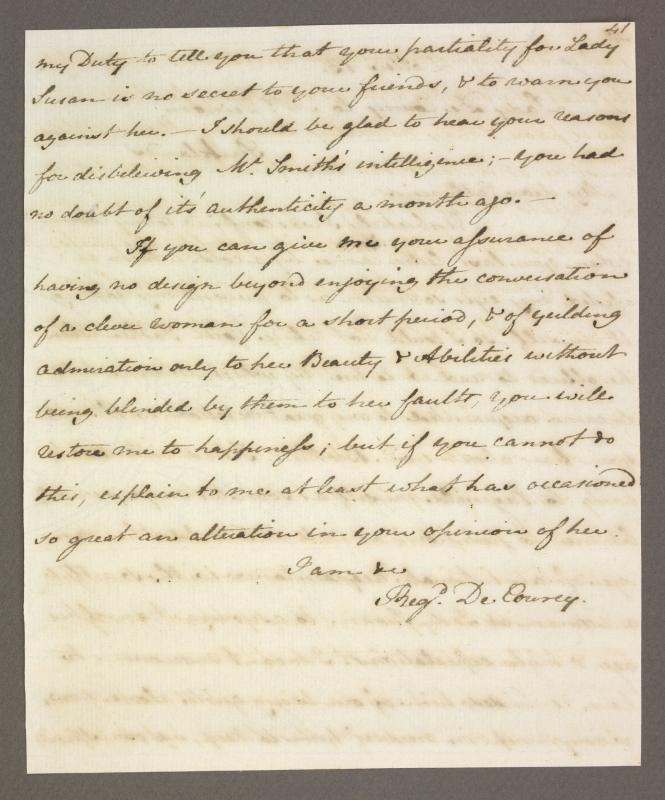 41
my Duty to tell you that your partiality for Lady
Susan is no secret to your friends, & to warn you
against her. — I should be glad to hear your reasons
for disbeleiving Mr. Smith's intelligence; — you had
no doubt of it's authenticity a month ago. —
If you can give me your assurance of
having no design beyond enjoying the conversation
of a clever woman for a short period, & of yeilding
admiration only to her Beauty & Abilities without
being blinded by them to her faults, you will
restore me to happiness; but if you cannot do
this, explain to me at least what has occasioned
so great an alteration in your opinion of her.
I am &c
Regd. De Courcy.